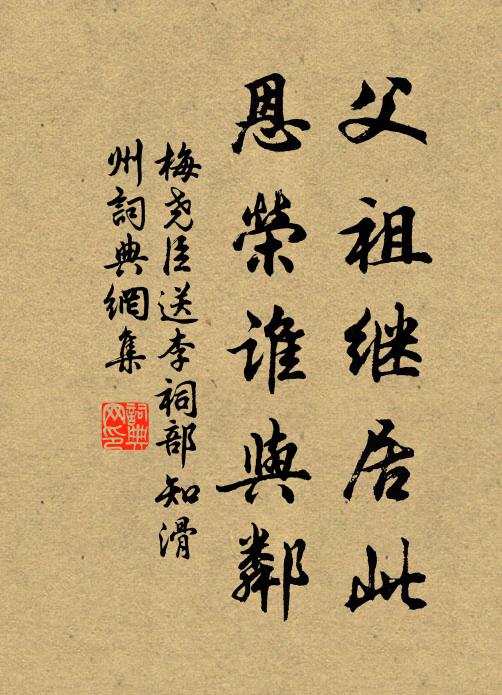 父祖继居此
恩榮谁與鄰
梅尧臣送李祠部知滑
州詞典網集
詞典
网印